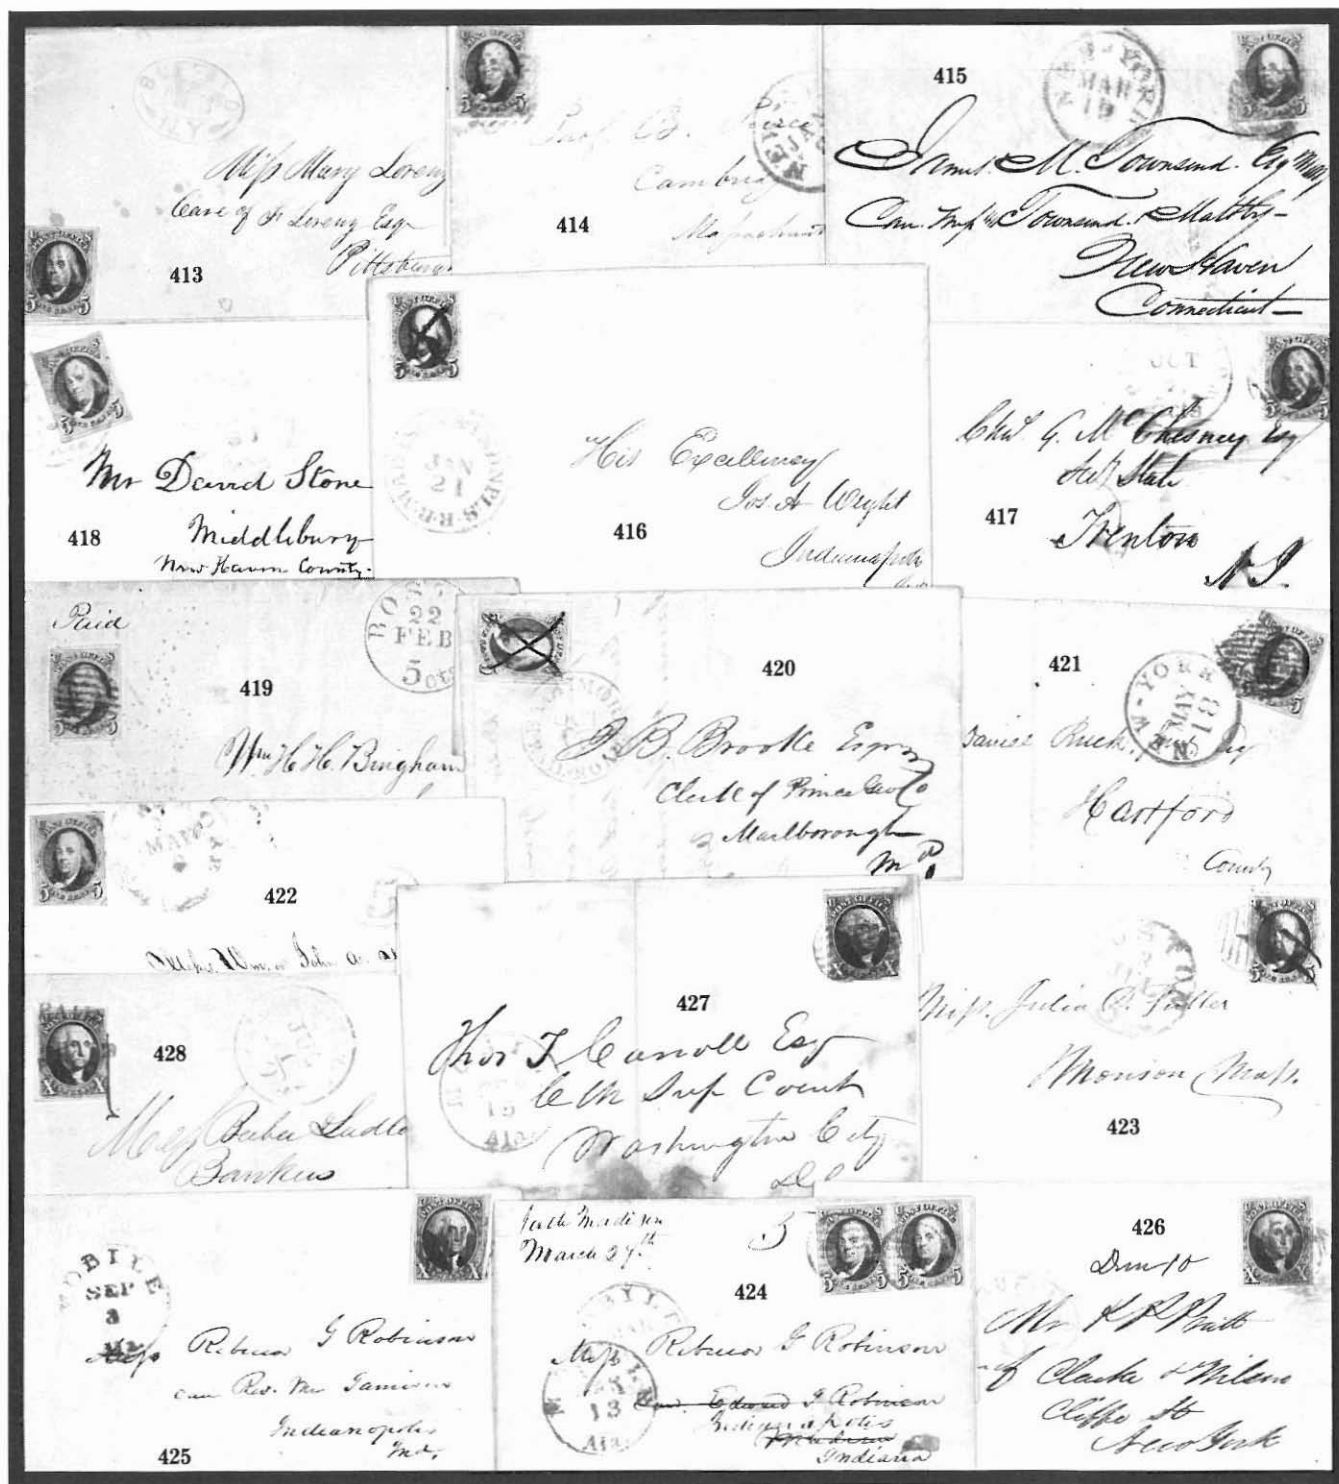 BUFFALO
Miss Mary Lorenz
Care of Fr Lorenz Esqr
Pittsburgh
413
5 5
Prof. B. Peirce
Cambridge
Massachusetts
414
5 5
415
NEW-YORK
MAR
19
James M. Townsend. Esq
Townsend & Maltby
New Haven
Connecticut
5 5
Mr David Stone
Middlebury
New Haven County.
418
5 5
JAN
21
His Excellency
Jos. A Wright
Indianapolis
416
5 5
OCT
Chas. G. McChesney Esq
Secy State
Trenton
N. J.
417
5 5
Paid
22
FEB
5 cts
419
Wm H. H. Bingham
5 5
420
J B. Brooke Esqr
Clerk of Prince Geo Co
Marlborough
Md.
421
NEW-YORK
MAY
18
Hartford
County
MAY
422
5 5
427
Thos T Carroll Esq
Clk Sup Court
Washington City
D C
15
Ala
X X
Miss. Julia A. Fuller
Monson Mass.
423
428
JUL
Bankers
X X
MOBILE
SEP
3
Miss Rebecca G Robinson
care Rev. Mr Jamison
Indianapolis
Ind.
425
X X
South Madison
March 27th
5
424
5 5 5 5
Miss Rebecca G Robinson
Care. Edward G Robinson
Indianapolis
Indiana
13
Ala.
426
Due 10
Mr
of Clarke & Wilson
Cliffe St
New York
X X